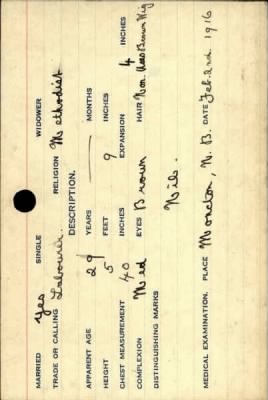 MARRIED Yes SINGLE WIDOWER
TRADE OR CALLING Labourer. RELIGION Methodist
DESCRIPTION.
APPARENT AGE 29 YEARS — MONTHS
HEIGHT 5 FEET 9 INCHES
CHEST MEASUREMENT 40 INCHES EXPANSION 4 INCHES
COMPLEXION Med EYES Brown HAIR Brown
DISTINGUISHING MARKS
Nil.
MEDICAL EXAMINATION. PLACE Moncton, N. B. DATE Feb. 2nd. 1916